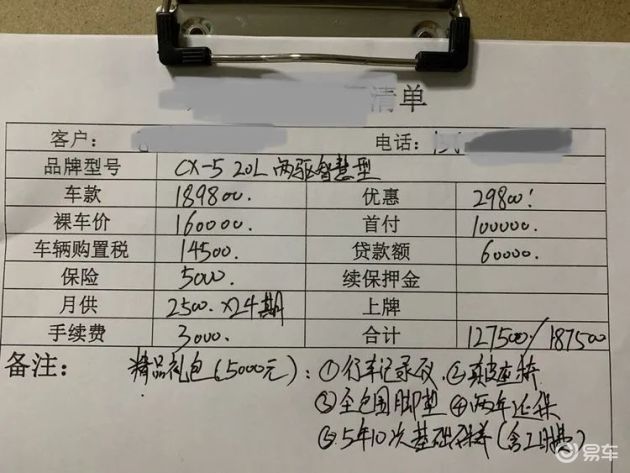 清单
客户: 电话:
品牌型号 CX-5 2.0L 两驱智慧型
车款 189800. 优惠 29800!
裸车价 160000. 首付 100000.
车辆购置税 14500. 贷款额 60000.
保险 5000 续保押金
月供 2500. ×24期 上牌
手续费 3000. 合计 127500/187500
备注: 精品礼包(5000元): ①行车记录仪. ②真皮座椅
③全包围脚垫 ④两年延保
⑤5年10次基础保养(含工时费)
易车